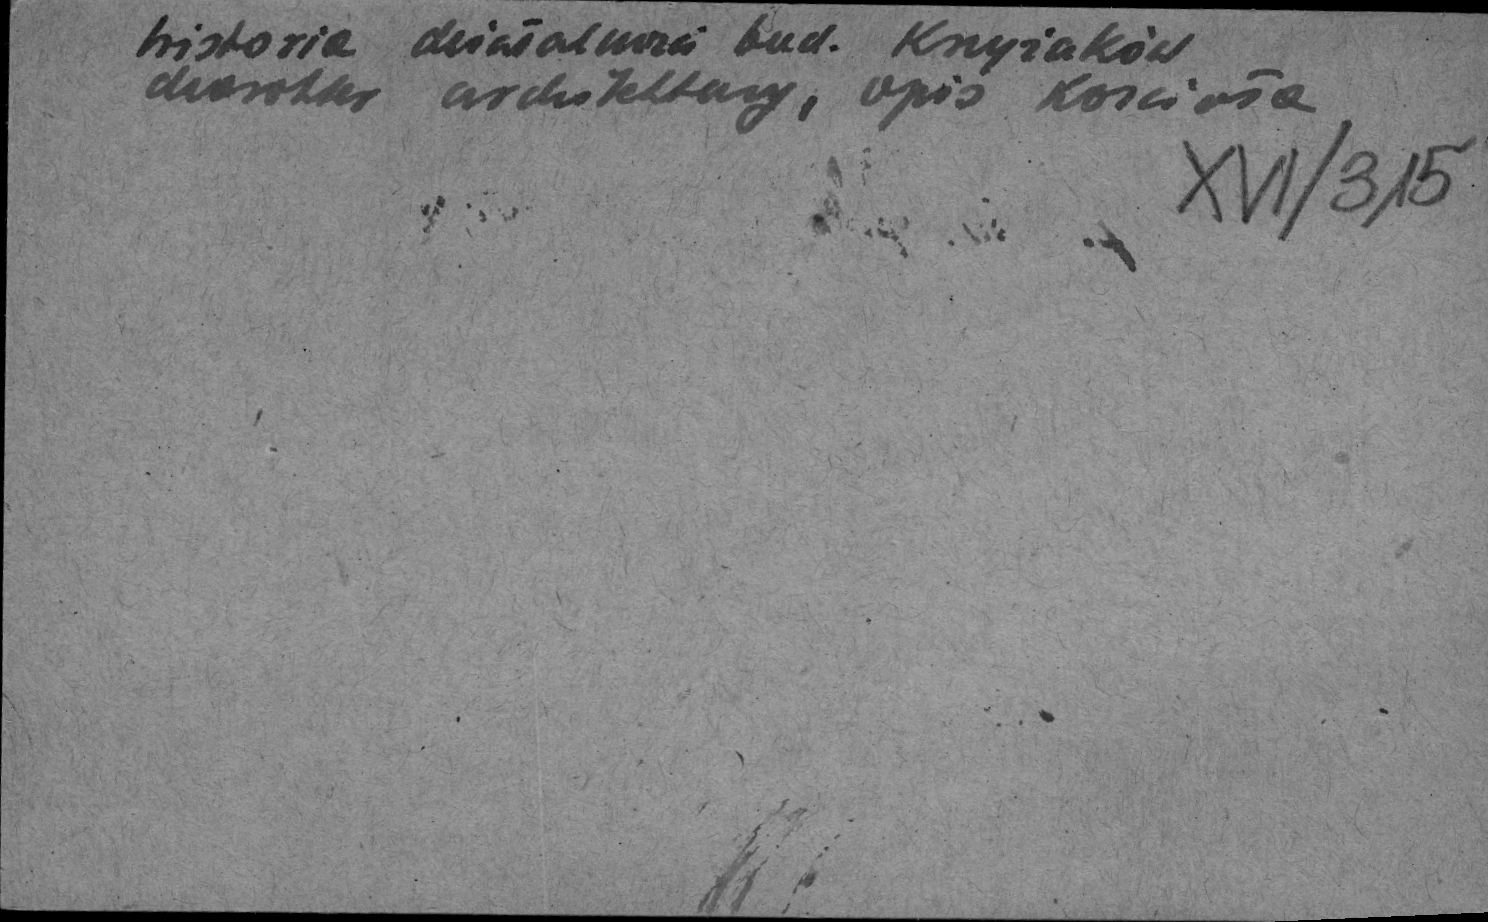 historia działalności bud. Krzyżaków
architektury, opis kościoła
XVI/3,15